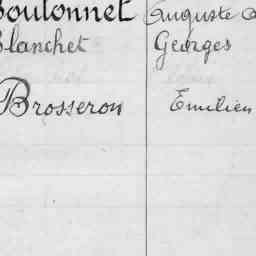 Boutonnet Auguste
Blanchet Georges
Brosseron Emilien